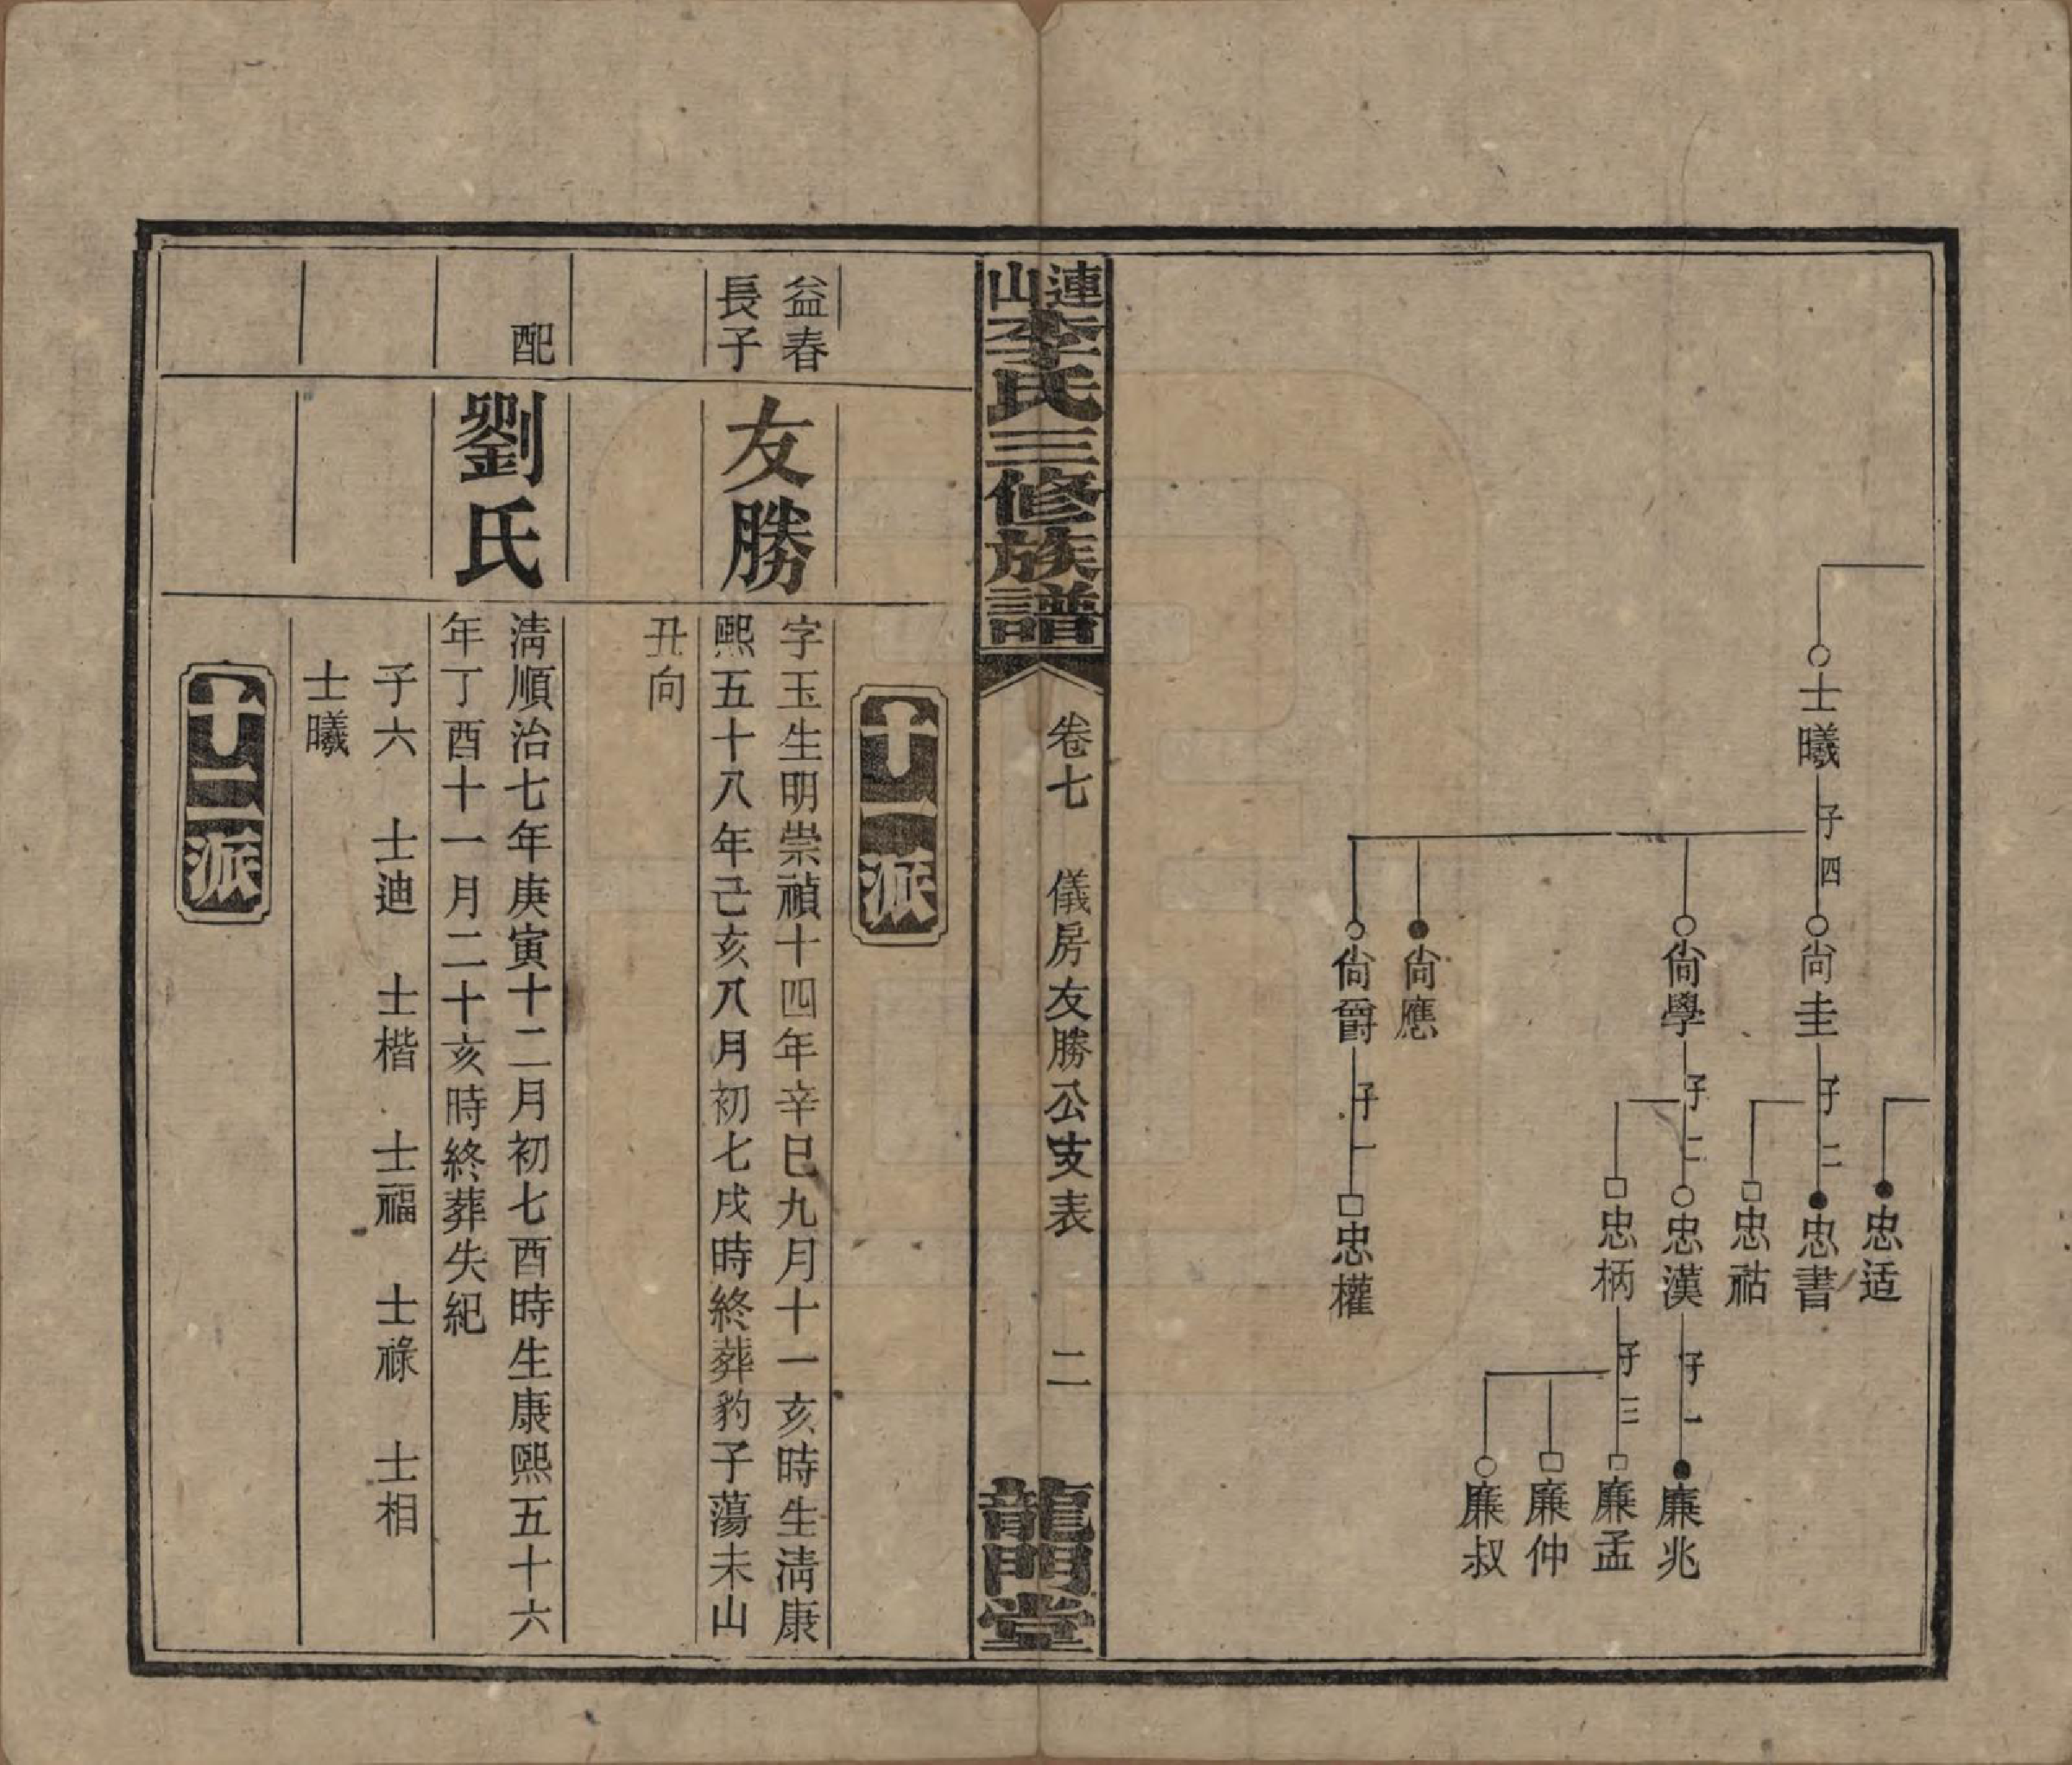 士曦
子四
尙圭
尙學
尙應
尙爵
子二
子二
子一
忠适
忠書
忠祜
忠漢
忠柄
忠權
子一
子三
廉兆
廉孟
廉仲
廉叔
連山李氏三修族譜
卷七
儀房友勝公支表
二
龍門堂
十一派
益春
長子
友勝
字玉生明崇禎十四年辛巳九月十一亥時生淸康
熙五十八年己亥八月初七戌時終葬豹子蕩未山
丑向
配
劉氏
淸順治七年庚寅十二月初七酉時生康熙五十六
年丁酉十一月二十亥時終葬失紀
子六 士迪 士楷 士福 士祿 士相
士曦
十二派